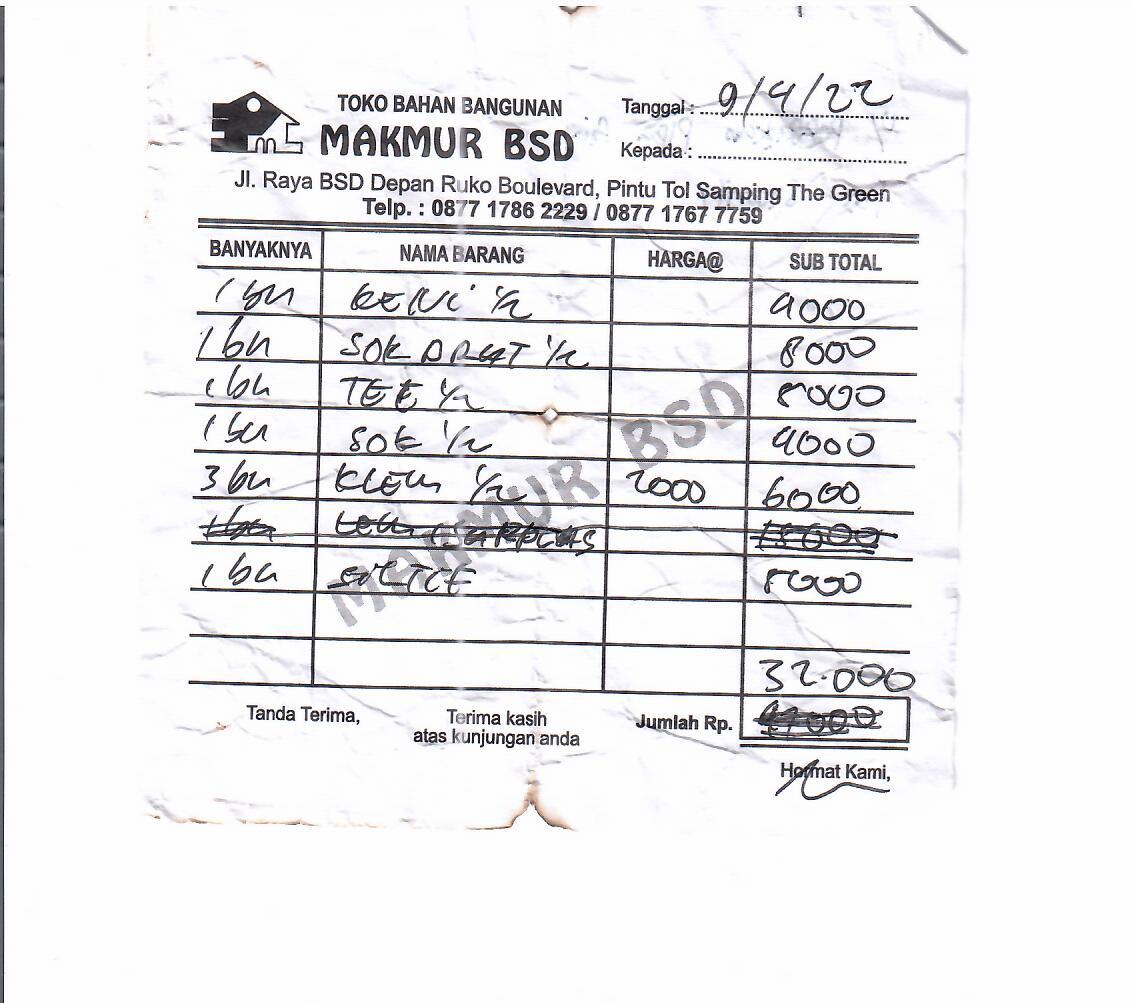 TOKO BAHAN BANGUNAN
MAKMUR BSD
Tanggal : 9/4/22
Kepada :
Jl. Raya BSD Depan Ruko Boulevard, Pintu Tol Samping The Green
Telp. : 0877 1786 2229 / 0877 1767 7759
BANYAKNYA NAMA BARANG HARGA@ SUB TOTAL
1 bh KENI 1/2 4000
1 bh SOK DRAT 1/2 8000
1 bh TEE 1/2 5000
1 bh SOK 1/2 4000
3 bh KLEM 1/2 2000 6000
1 bh LEM 15000
1 bh 5000
MAKMUR BSD
32.000
Tanda Terima, Terima kasih Jumlah Rp. 47000
atas kunjungan anda
Hormat Kami,